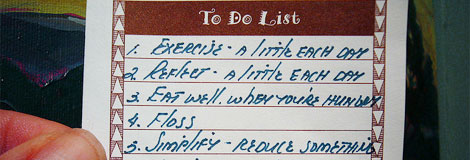 To Do List
1. EXERCISE - A little EACH DAY
2. REFLECT - A little EACH DAY
3. EAT WELL. WHEN YOU'RE HUNGRY
4. Floss
5. SIMPLIFY - REDUCE SOMETHING